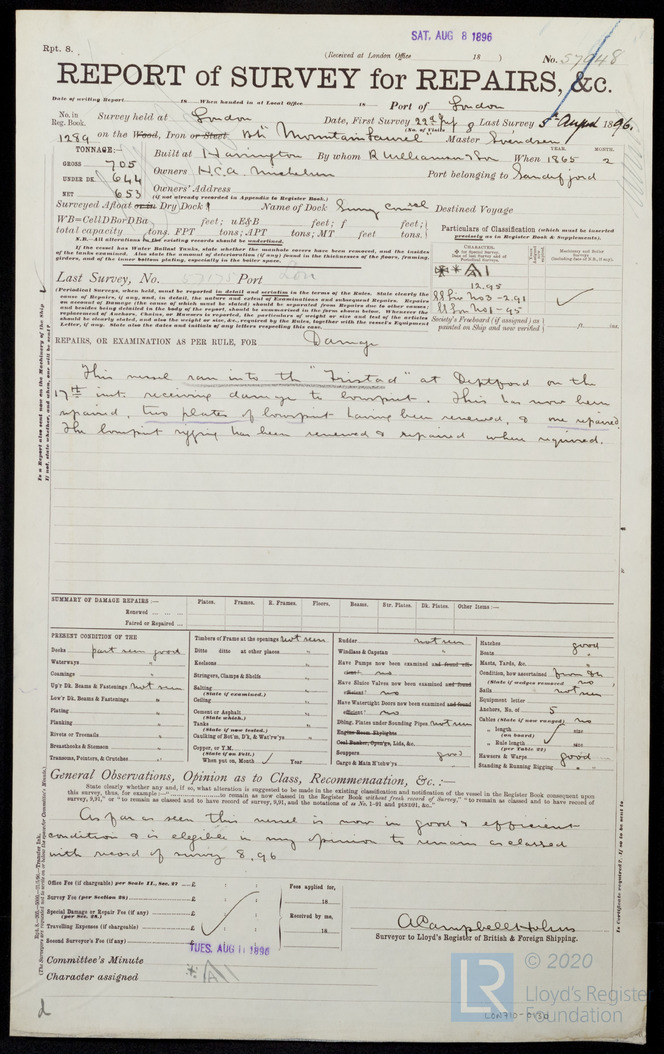 SAT. AUG 8 1896
Rpt. 8.
(Received at London Office 18 )
No. 57948
REPORT of SURVEY for REPAIRS, &c.
Date of writing Report 18 When handed in at Local Office 18 Port of London
No. in Reg. Book. Survey held at London Date, First Survey 22nd July Last Survey 5th August 1896.
(No. of Visits 8
1289 on the Wood, Iron or Steel Bk "Mountain Laurel" Master Svendsen
TONNAGE:—
GROSS 705
UNDER DK. 644
NET 653
Built at Harrington By whom R Williamson & Son When 1865 2
YEAR. MONTH.
Owners H.C.A. Michelsen Port belonging to Sandefjord
Owners' Address
(if not already recorded in Appendix to Register Book.)
Surveyed Afloat or in Dry Dock? Name of Dock Surrey Canal Destined Voyage
WB=CellDBorDBa feet; uE&B feet; f feet;
total capacity tons. FPT tons; APT tons; MT feet tons.
N.B.—All alterations in the existing records should be underlined.
If the vessel has Water Ballast Tanks, state whether the manhole covers have been removed, and the insides
of the tanks examined. Also state the amount of deterioration (if any) found in the thicknesses of the floors, framing,
girders, and of the inner bottom plating, especially in the boiler space.
Particulars of Classification (which must be inserted
precisely as in Register Book & Supplements).
12.95
SS Lon No3-2.91
SS Lon No1-95
Society's Freeboard (if assigned) as
painted on Ship and now verified ft. ins.
Last Survey, No. Port Lon
(Periodical Surveys, when held, must be reported in detail and seriatim in the terms of the Rules. State clearly the
cause of Repairs, if any, and, in detail, the nature and extent of Examinations and subsequent Repairs. Repairs
on account of Damage (the cause of which must be stated) should be separated from Repairs due to other causes;
and besides being detailed in the body of the report, should be summarised in the form shown below. Whenever the
replacement of Anchors, Chains, or Hawsers is reported, the particulars of weight or size and test of the articles
should be clearly stated, and also the weight or size, &c., required by the Rules, together with the vessel's Equipment
Letter, if any. State also the dates and initials of any letters respecting this case.
REPAIRS, OR EXAMINATION AS PER RULE, FOR Damage
This vessel ran into the "Tristad" at Deptford on the
17th inst. receiving damage to bowsprit. This has now been
repaired, two plates of bowsprit having been renewed, & one repaired
The bowsprit rigging has been renewed & repaired where required.
SUMMARY OF DAMAGE REPAIRS:— Plates. Frames. R. Frames. Floors. Beams. Str. Plates. Dk. Plates. Other Items:—
Renewed
Faired or Repaired
PRESENT CONDITION OF THE
Decks part seen good
Waterways "
Coamings "
Up'r Dk. Beams & Fastenings not seen
Low'r Dk. Beams & Fastenings "
Plating "
Planking "
Rivets or Treenails "
Breasthooks & Stemson "
Transoms, Pointers, & Crutches "
Timbers of Frame at the openings not seen
Ditto ditto at other places "
Keelsons "
Stringers, Clamps & Shelfs "
Salting
(State if examined.)
Ceiling
Cement or Asphalt
(State which.)
Tanks
(State if now tested.)
Caulking of Bot'm. D'k, & Wat'rw'ys
Copper, or Y.M.
(State if on Felt.)
When put on, Month Year
Rudder not seen
Windlass & Capstan "
Have Pumps now been examined and found efficient? no
Have Sluice Valves now been examined and found efficient? no
Have Watertight Doors now been examined and found efficient? no
Dbling. Plates under Sounding Pipes not seen
Engine Room Skylights
Coal Bunker, Open'gs, Lids, &c.
Scuppers good
Cargo & Main H'tchw'ys "
Hatches good
Boats "
Masts, Yards, &c. "
Condition, how ascertained from dk
(State if wedges removed no
Sails not seen
Equipment letter
Anchors, No. of 5
Cables (State if now ranged) no
" length size
(on board)
" Rule length size
(per Table 22)
Hawsers & Warps good
Standing & Running Rigging " "
General Observations, Opinion as to Class, Recommendation, &c.:—
State clearly whether any, and if so, what alteration is suggested to be made in the existing classification and notification of the vessel in the Register Book consequent upon
this survey, thus, for example :— to remain as now classed in the Register Book without fresh record of Survey," "to remain as classed and to have record of
survey, 9,91," or "to remain as classed and to have record of survey, 9,91, and the notations of ss No. 1-91 and ptss91, &c."
As far as seen this vessel is now in good & efficient
condition & is eligible in my opinion to remain as classed
with record of survey 8,96
Office Fee (if chargeable) per Scale II., Sec. 27 £ : :
Survey Fee (per Section 28) £ : :
Special Damage or Repair Fee (if any) £ : :
(per Sec. 28.)
Travelling Expenses (if chargeable) £ : :
Second Surveyor's Fee (if any) £ : :
Fees applied for,
18
Received by me,
18
A Campbell Holms
Surveyor to Lloyd's Register of British & Foreign Shipping.
TUES. AUG 11 1896
Committee's Minute
Character assigned
LR
© 2020
Lloyd's Register
Foundation
LON710-0130